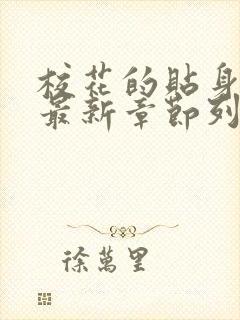 校花的貼身
最新章節列
徐萬里